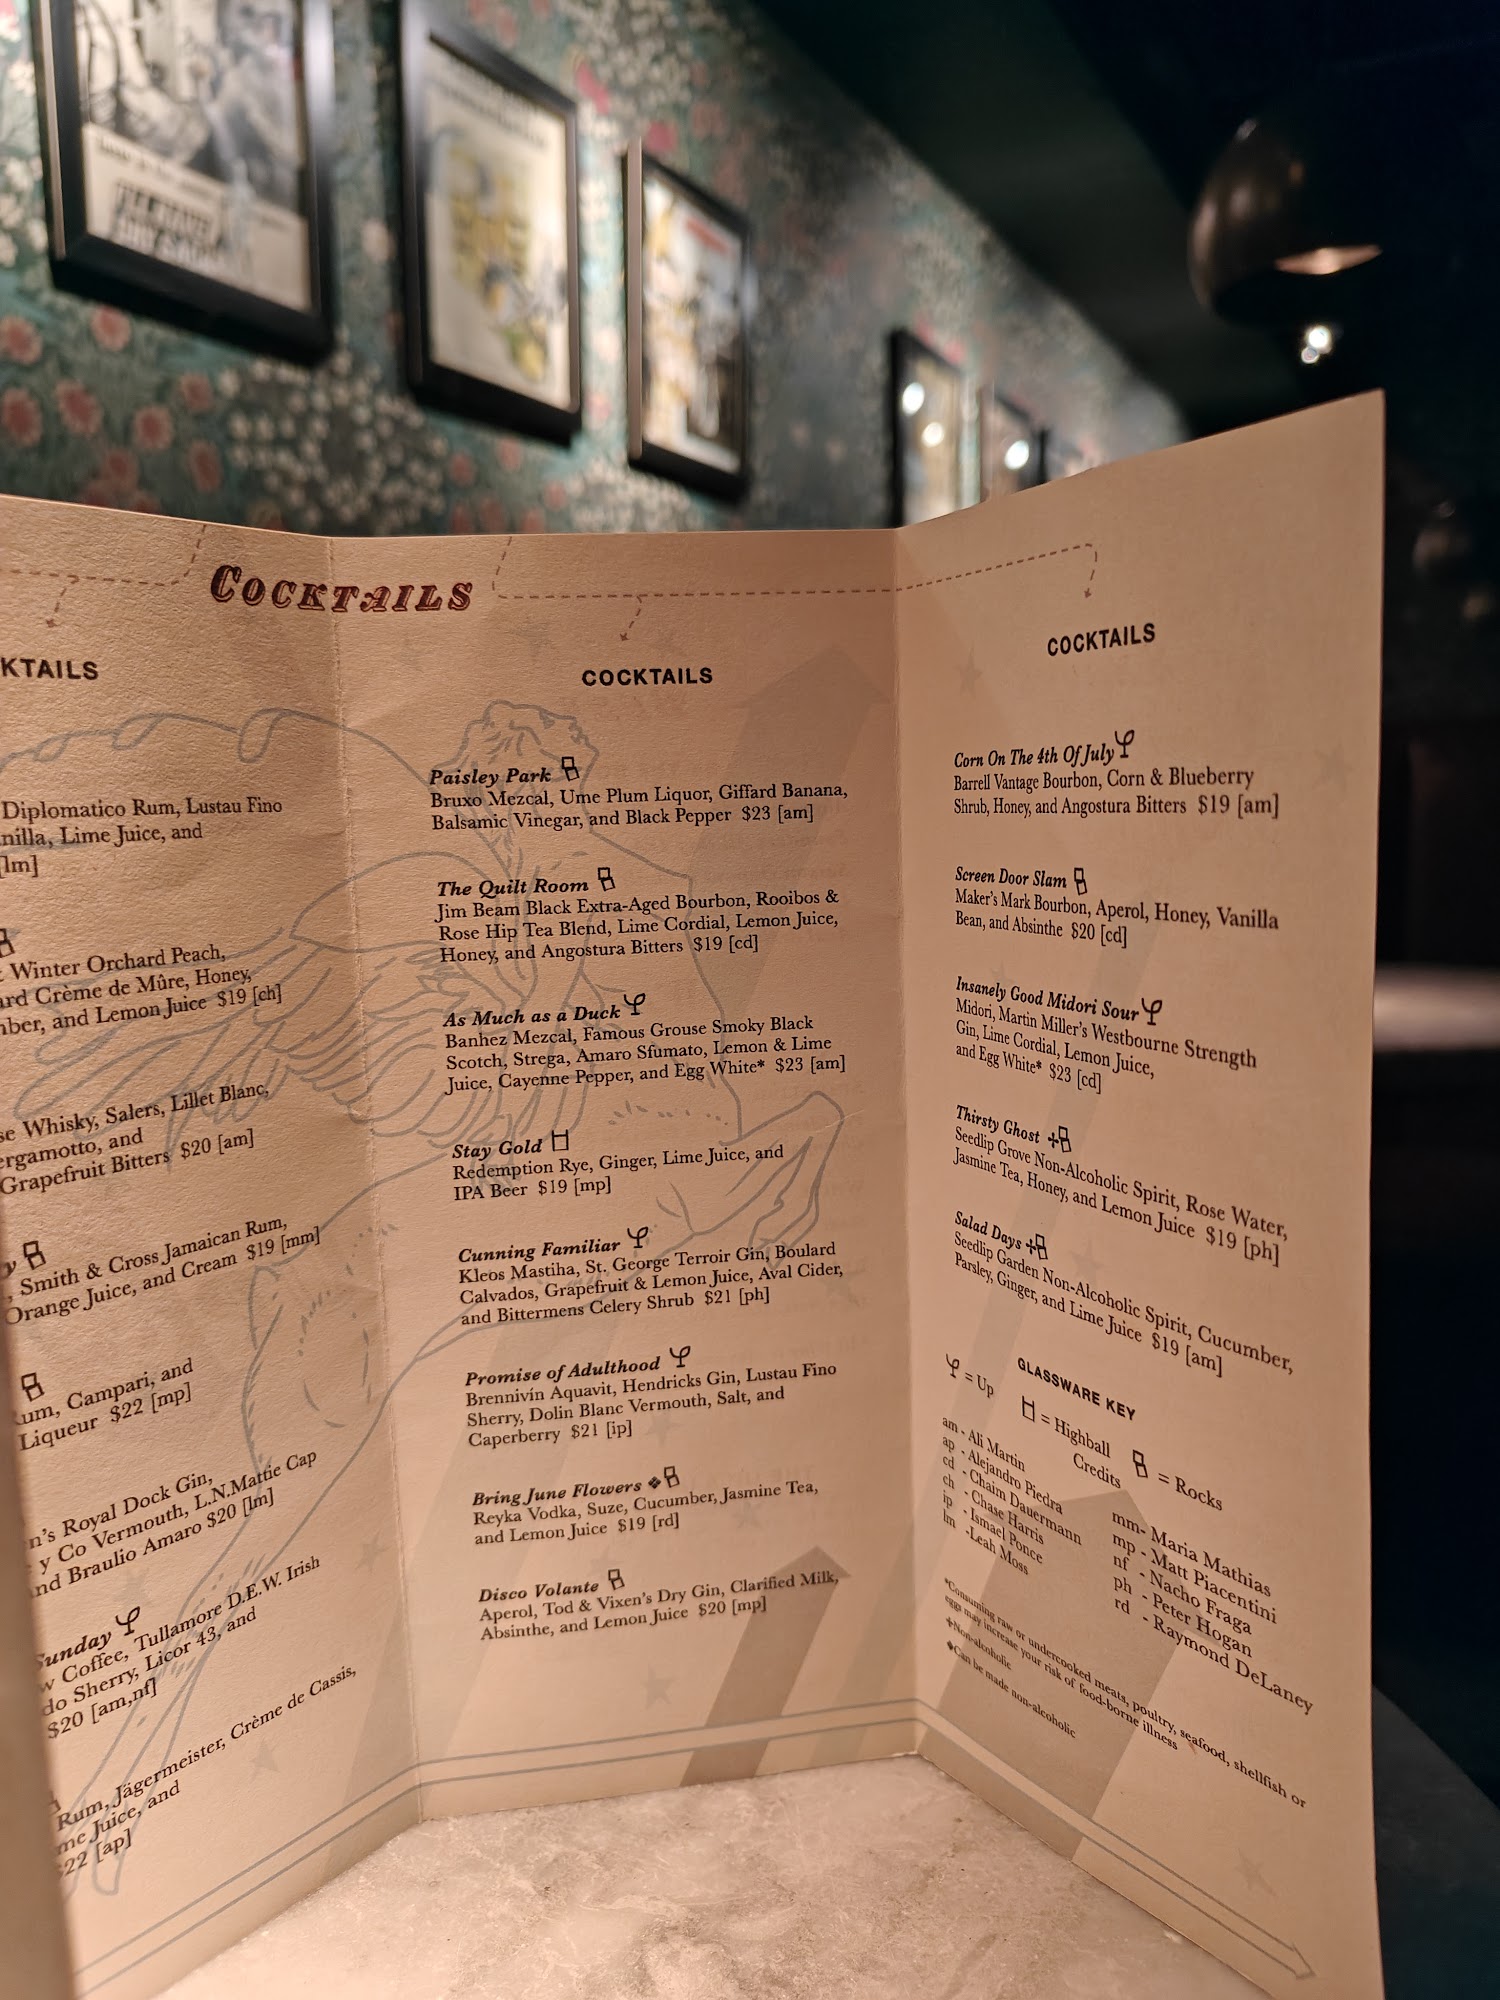 COCKTAILS
KTAILS
Diplomatico Rum, Lustau Fino
nilla, Lime Juice, and
[lm]
Winter Orchard Peach,
ard Crème de Mûre, Honey,
mber, and Lemon Juice $19 [ch]
se Whisky, Salers, Lillet Blanc,
ergamotto, and
Grapefruit Bitters $20 [am]
y
, Smith & Cross Jamaican Rum,
Orange Juice, and Cream $19 [mm]
Rum, Campari, and
Liqueur $22 [mp]
n's Royal Dock Gin,
y Co Vermouth, L.N.Mattie Cap
and Braulio Amaro $20 [lm]
Sunday
w Coffee, Tullamore D.E.W. Irish
do Sherry, Licor 43, and
$20 [am,nf]
Rum, Jägermeister, Crème de Cassis,
me Juice, and
$22 [ap]
COCKTAILS
Paisley Park
Bruxo Mezcal, Ume Plum Liquor, Giffard Banana,
Balsamic Vinegar, and Black Pepper $23 [am]
The Quilt Room
Jim Beam Black Extra-Aged Bourbon, Rooibos &
Rose Hip Tea Blend, Lime Cordial, Lemon Juice,
Honey, and Angostura Bitters $19 [cd]
As Much as a Duck
Banhez Mezcal, Famous Grouse Smoky Black
Scotch, Strega, Amaro Sfumato, Lemon & Lime
Juice, Cayenne Pepper, and Egg White* $23 [am]
Stay Gold
Redemption Rye, Ginger, Lime Juice, and
IPA Beer $19 [mp]
Cunning Familiar
Kleos Mastiha, St. George Terroir Gin, Boulard
Calvados, Grapefruit & Lemon Juice, Aval Cider,
and Bittermens Celery Shrub $21 [ph]
Promise of Adulthood
Brennivín Aquavit, Hendricks Gin, Lustau Fino
Sherry, Dolin Blanc Vermouth, Salt, and
Caperberry $21 [ip]
Bring June Flowers ❖
Reyka Vodka, Suze, Cucumber, Jasmine Tea,
and Lemon Juice $19 [rd]
Disco Volante
Aperol, Tod & Vixen's Dry Gin, Clarified Milk,
Absinthe, and Lemon Juice $20 [mp]
COCKTAILS
Corn On The 4th Of July
Barrell Vantage Bourbon, Corn & Blueberry
Shrub, Honey, and Angostura Bitters $19 [am]
Screen Door Slam
Maker's Mark Bourbon, Aperol, Honey, Vanilla
Bean, and Absinthe $20 [cd]
Insanely Good Midori Sour
Midori, Martin Miller's Westbourne Strength
Gin, Lime Cordial, Lemon Juice,
and Egg White* $23 [cd]
Thirsty Ghost ✢
Seedlip Grove Non-Alcoholic Spirit, Rose Water,
Jasmine Tea, Honey, and Lemon Juice $19 [ph]
Salad Days ✢
Seedlip Garden Non-Alcoholic Spirit, Cucumber,
Parsley, Ginger, and Lime Juice $19 [am]
GLASSWARE KEY
= Up
= Highball
= Rocks
Credits
am - Ali Martin
ap - Alejandro Piedra
cd - Chaim Dauermann
ch - Chase Harris
ip - Ismael Ponce
lm -Leah Moss
mm- Maria Mathias
mp - Matt Piacentini
nf - Nacho Fraga
ph - Peter Hogan
rd - Raymond DeLaney
*Consuming raw or undercooked meats, poultry, seafood, shellfish or
eggs may increase your risk of food-borne illness
✢Non-alcoholic
❖Can be made non-alcoholic